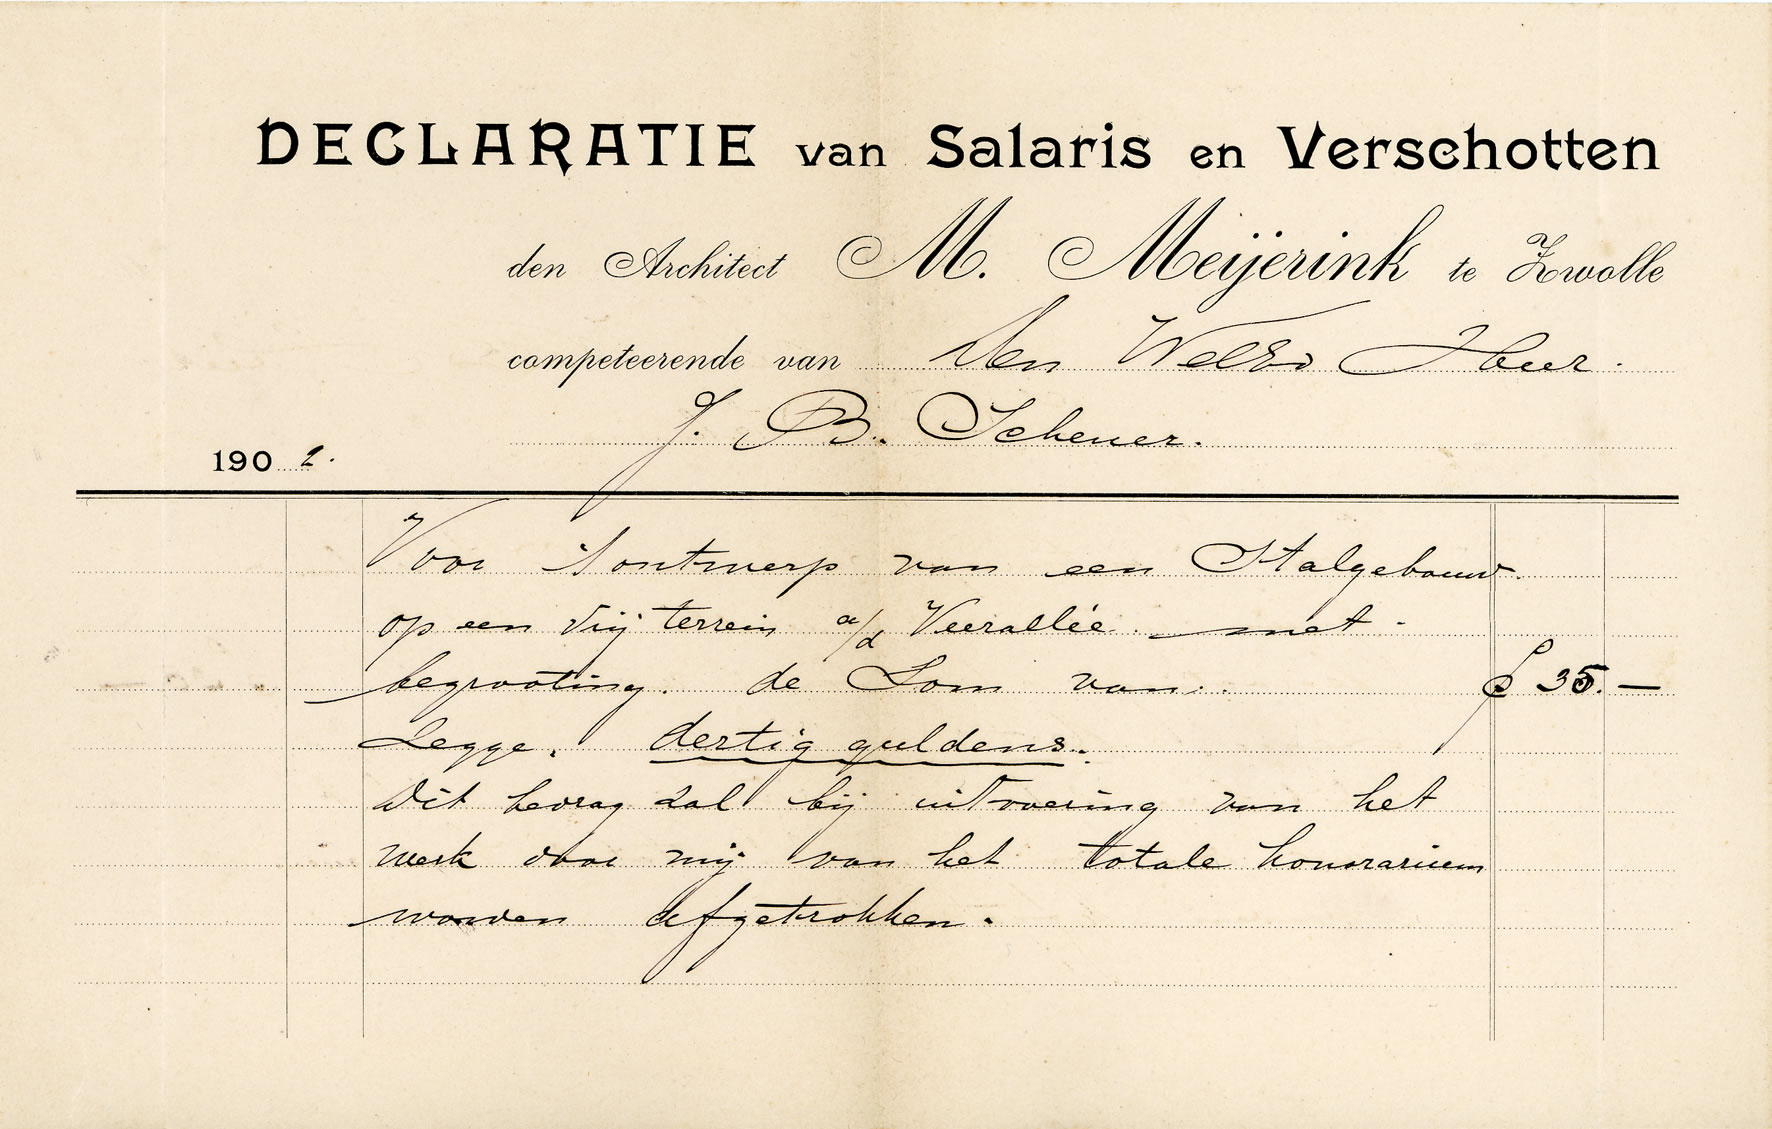 DECLARATIE van Salaris en Verschotten
den Architect M. Meijerink te Zwolle
competeerende van Den WelEd Heer.
J. B. Scheuer.
1902.
Voor 't ontwerp van een Stalgebouw
op een vrij terrein a/d Veerallée met
begrooting. de Som van. ƒ 35.—
Zegge. dertig guldens.
Dit bedrag zal bij uitvoering van het
werk door mij van het totale honorarium
worden afgetrokken.